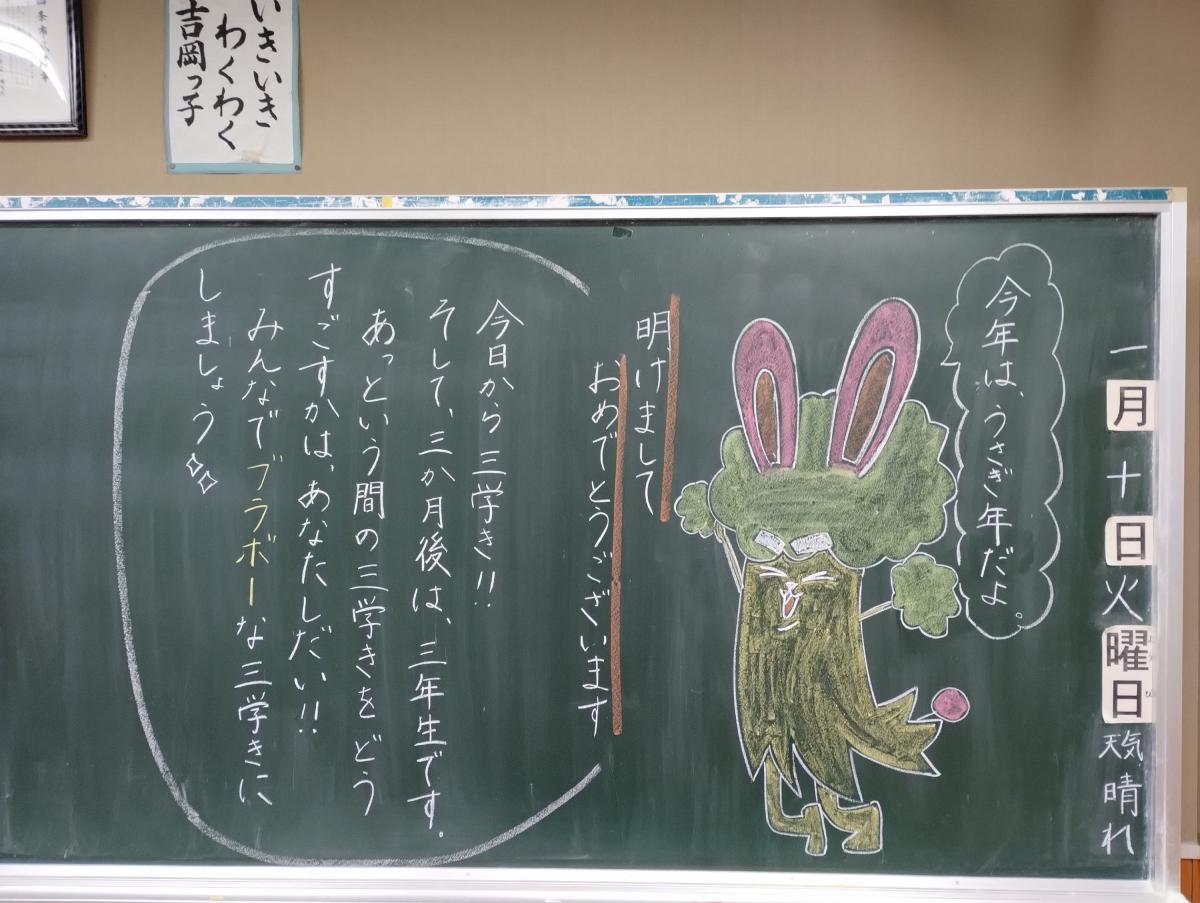 いきいき
わくわく
吉岡っ子
一月十日火曜日天気晴れ
今年は、うさぎ年だよ。
明けまして
おめでとうございます
今日から三学き!!
そして、三か月後は、三年生です。
あっという間の三学きをどう
すごすかは、あなたしだい!!
みんなでブラボーな三学きに
しましょう